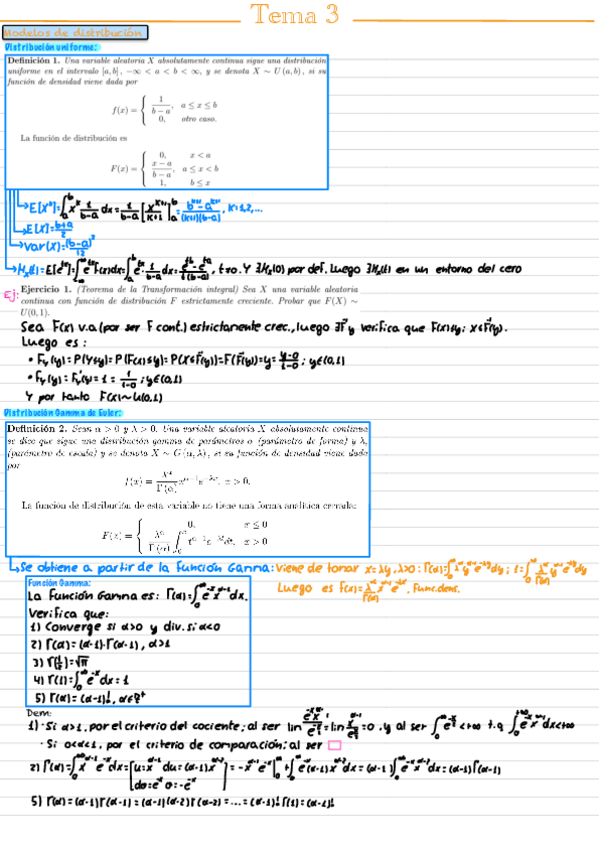 Tema 3
Modelos de distribución
Distribución uniforme:
Definición 1. Una variable aleatoria X absolutamente continua sigue una distribución
uniforme en el intervalo [a, b], −∞ < a < b < ∞, y se denota X ∼ U (a, b), si su
función de densidad viene dada por
f(x) = { 1/(b − a), a ≤ x ≤ b
0, otro caso.
La función de distribución es
F(x) = { 0, x < a
(x − a)/(b − a), a ≤ x < b
1, b ≤ x
E[X^k]=∫_a^b x^k 1/(b-a) dx = 1/(b-a) [x^(k+1)/(k+1)]_a^b = (b^(k+1)-a^(k+1))/((k+1)(b-a)), k=1,2,...
E[X]=(b+a)/2
Var(X)=(b-a)²/12
M_x(t)=E[e^tx]=∫ e^tx f(x)dx=∫_a^b e^tx 1/(b-a) dx = (e^tb-e^ta)/(t(b-a)), t≠0. Y ∃M_x(0) por def. Luego ∃M_x(t) en un entorno del cero
Ej:
Ejercicio 1. (Teorema de la Transformación integral) Sea X una variable aleatoria
continua con función de distribución F estrictamente creciente. Probar que F(X) ∼
U(0, 1).
Sea F(x) v.a (por ser F cont.) estrictamente crec., luego ∃F⁻¹ y verifica que F(x)≤y; x≤F⁻¹(y).
Luego es:
• F_Y(y)=P(Y≤y)=P(F(x)≤y)=P(X≤F⁻¹(y))=F(F⁻¹(y))=y=(y-0)/(1-0); y∈(0,1)
• f_Y(y)=F'_Y(y)=1=1/(1-0); y∈(0,1)
Y por tanto F(x)~U(0,1)
Distribución Gamma de Euler:
Definición 2. Sean α > 0 y λ > 0. Una variable aleatoria X absolutamente continua
se dice que sigue una distribución gamma de parámetros α (parámetro de forma) y λ,
(parámetro de escala) y se denota X ∼ G (α, λ), si su función de densidad viene dada
por
f(x) = λ^α/Γ(α) x^(α−1) e^(−λx), x > 0.
La función de distribución de esta variable no tiene una forma analítica cerrada:
F(x) = { 0, x ≤ 0
λ^α/Γ(α) ∫_0^x t^(α−1) e^(−λt) dt, x > 0
Se obtiene a partir de la función Gamma: Viene de tomar x=λy, λ>0: Γ(α)=∫_0^∞ λ^α y^(α-1) e^(-λy) dy; 1=∫_0^∞ λ^α/Γ(α) y^(α-1) e^(-λy) dy
Luego es f(x)=λ^α/Γ(α) x^(α-1) e^(-λx), func.dens.
Función Gamma:
La función Gamma es: Γ(α)=∫_0^∞ e^(-x) x^(α-1) dx.
Verifica que:
1) Converge si α>0 y div. si α≤0
2) Γ(α)=(α-1)·Γ(α-1), α>1
3) Γ(1/2)=√π
4) Γ(1)=∫_0^∞ e^(-x) dx = 1
5) Γ(α)=(α-1)!, α∈Z⁺
Dem:
1) · Si α>1, por el criterio del cociente; al ser lim e^(-x) x^(α-1)/e^(-x/2) = lim x^(α-1)/e^(x/2) = 0, y al ser ∫_0^∞ e^(-x/2) <+∞ t.q ∫_0^(+∞) e^(-x) x^(α-1) dx<+∞
· Si 0<α<1, por el criterio de comparación; al ser
2) Γ(α)=∫_0^∞ x^(α-1) e^(-x) dx=[u=x^(α-1) du=(α-1)x^(α-2)
dv=e^(-x) v=-e^(-x)] = -x^(α-1) e^(-x)]_0^∞ + ∫_0^∞ e^(-x)(α-1)x^(α-2) dx=(α-1)∫_0^∞ e^(-x) x^(α-2) dx=(α-1)Γ(α-1)
5) Γ(α)=(α-1)Γ(α-1)=(α-1)(α-2)Γ(α-2)=...=(α-1)! Γ(1)=(α-1)!